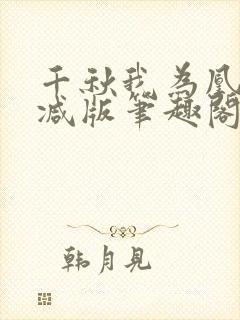 千秋我为凰
减版笔趣阁
韩月见